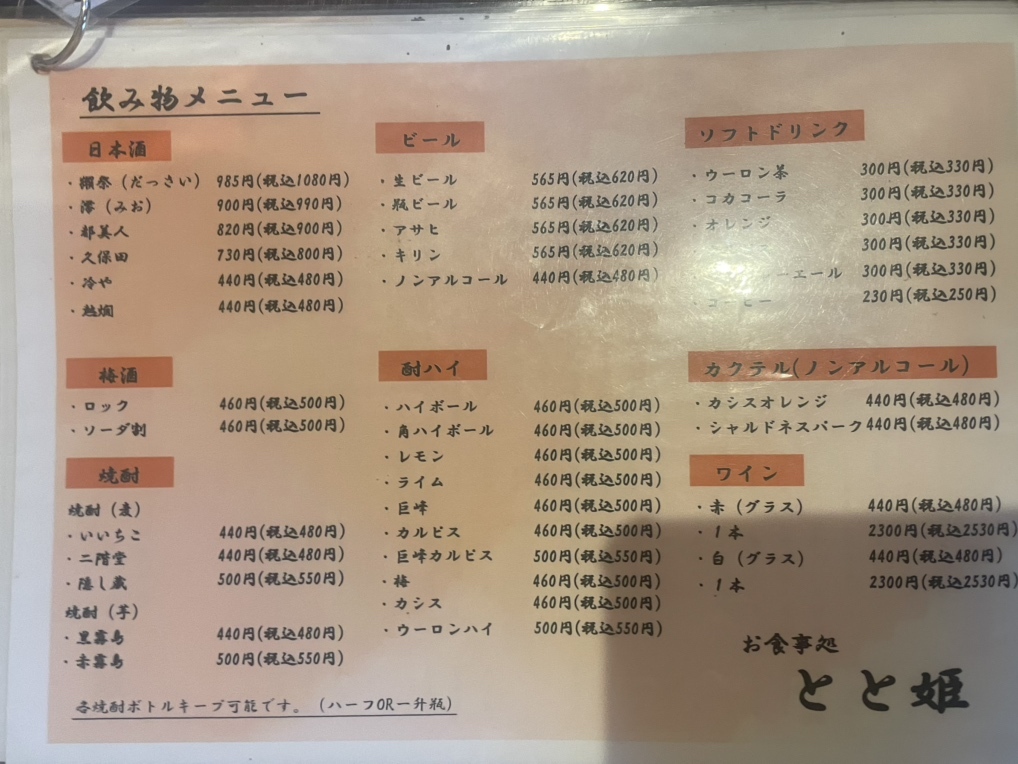 飲み物メニュー
日本酒
・獺祭（だっさい） 985円(税込1080円)
・澪（みお） 900円(税込990円)
・都美人 820円(税込900円)
・久保田 730円(税込800円)
・冷や 440円(税込480円)
・熱燗 440円(税込480円)
梅酒
・ロック 460円(税込500円)
・ソーダ割 460円(税込500円)
焼酎
焼酎（麦）
・いいちこ 440円(税込480円)
・二階堂 440円(税込480円)
・隠し蔵 500円(税込550円)
焼酎（芋）
・黒霧島 440円(税込480円)
・赤霧島 500円(税込550円)
各焼酎ボトルキープ可能です。（ハーフOR一升瓶）
ビール
・生ビール 565円(税込620円)
・瓶ビール 565円(税込620円)
・アサヒ 565円(税込620円)
・キリン 565円(税込620円)
・ノンアルコール 440円(税込480円)
酎ハイ
・ハイボール 460円(税込500円)
・角ハイボール 460円(税込500円)
・レモン 460円(税込500円)
・ライム 460円(税込500円)
・巨峰 460円(税込500円)
・カルピス 460円(税込500円)
・巨峰カルピス 500円(税込550円)
・梅 460円(税込500円)
・カシス 460円(税込500円)
・ウーロンハイ 500円(税込550円)
ソフトドリンク
・ウーロン茶 300円(税込330円)
・コカコーラ 300円(税込330円)
・オレンジ 300円(税込330円)
300円(税込330円)
ーエール 300円(税込330円)
・コーヒー 230円(税込250円)
カクテル(ノンアルコール)
・カシスオレンジ 440円(税込480円)
・シャルドネスパーク 440円(税込480円)
ワイン
・赤（グラス） 440円(税込480円)
・１本 2300円(税込2530円)
・白（グラス） 440円(税込480円)
・１本 2300円(税込2530円)
お食事処
とと姫